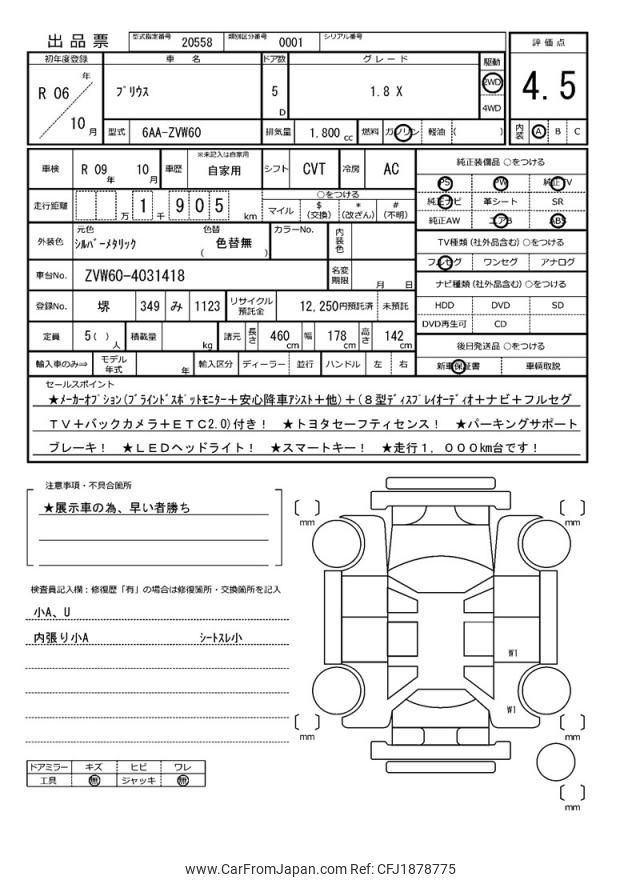 出品票
型式指定番号 20558 類別区分番号 0001 シリアル番号
評価点
4.5
内装 A B C
初年度登録 車名 ドア数 グレード 駆動
R 06 年 10 月
プリウス 5 D 1.8 X 2WD 4WD
型式 6AA-ZVW60 排気量 1.800 cc 燃料 ガソリン 軽油 ( )
車検 R 09 年 10 月 車歴 ※未記入は自家用 自家用 シフト CVT 冷房 AC
走行距離 万 1 千 9 0 5 km
○をつける
マイル $(交換) *(改ざん) #(不明)
外装色 元色 シルバーメタリック 色替 ( 色替無 ) カラーNo. 内装色
車台No. ZVW60-4031418 名変期限 月 日
登録No. 堺 349 み 1123 リサイクル預託金 12,250円預託済 未預託
定員 5( )人 積載量 kg 諸元 長さ 460 cm 幅 178 cm 高さ 142 cm
輸入車のみ⇒ モデル年式 年 輸入区分 ディーラー 並行 ハンドル 左 右
純正装備品 ○をつける
PS PW 純正TV
純正ナビ 革シート SR
純正AW エアB ABS
TV種類(社外品含む)○をつける
フルセグ ワンセグ アナログ
ナビ種類(社外品含む)○をつける
HDD DVD SD
DVD再生可 CD
後日発送品 ○をつける
新車保証書 車輌取説
セールスポイント
★メーカーオプション(ブラインドスポットモニター+安心降車アシスト+他)+(8型ディスプレイオーディオ+ナビ+フルセグ
TV+バックカメラ+ETC2.0)付き! ★トヨタセーフティセンス! ★パーキングサポート
ブレーキ! ★LEDヘッドライト! ★スマートキー! ★走行1,000km台です!
注意事項・不具合箇所
★展示車の為、早い者勝ち
検査員記入欄:修復歴「有」の場合は修復箇所・交換箇所を記入
小A、U
内張り小A シートスレ小
ドアミラー キズ ヒビ ワレ
工具 無 ジャッキ 無
mm
mm
W1
W1
mm
mm
mm
www.CarFromJapan.com Ref: CFJ1878775